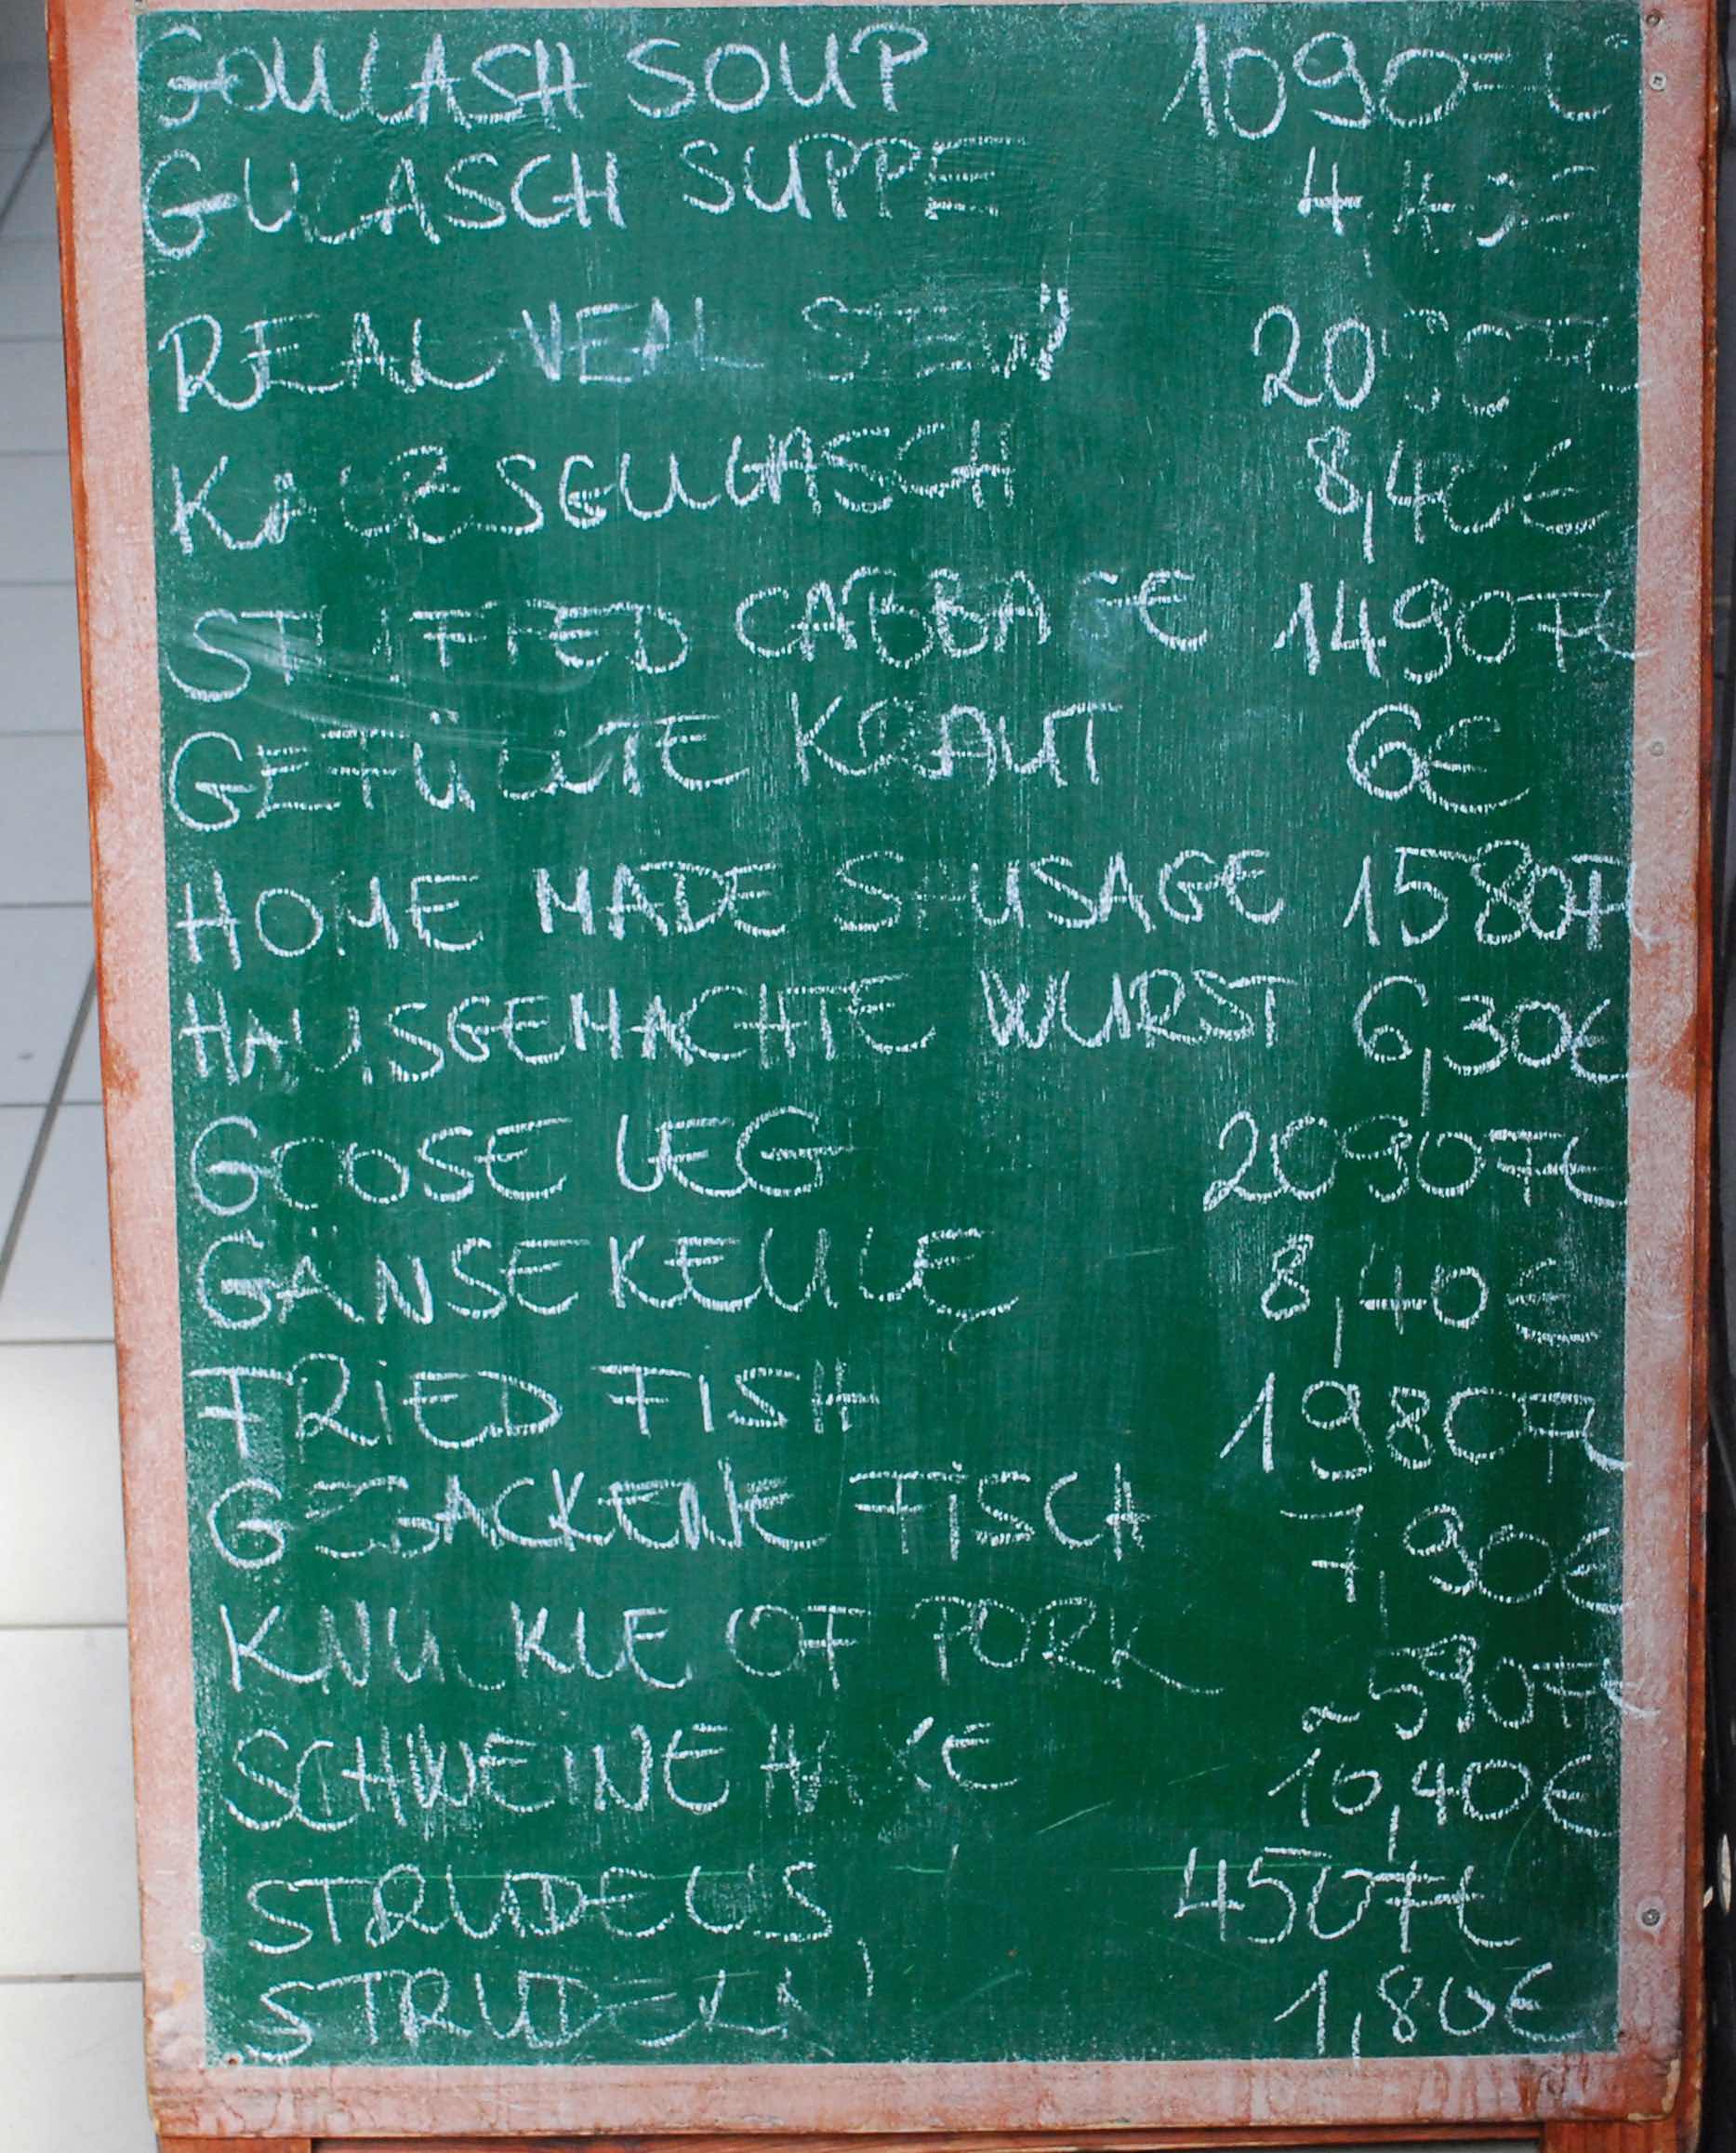 GOULASH SOUP 1090
GULASCH SUPPE
REAL VEAL STEW
KALBSGULGASCH 8,40€
STUFFED CABBAGE 1490Ft
GEFÜLLTE KRAUT 6€
HOME MADE SAUSAGE 1580Ft
HAUSGEMACHTE WURST 6,30€
GOOSE LEG 2090Ft
GÄNSEKEULE 8,40€
FRIED FISH 1980Ft
GEBACKENE FISCH 7,90€
KNUCKLE OF PORK 2590Ft
SCHWEINE HAXE 10,40€
STRUDELS 450Ft
STRUDELN 1,80€